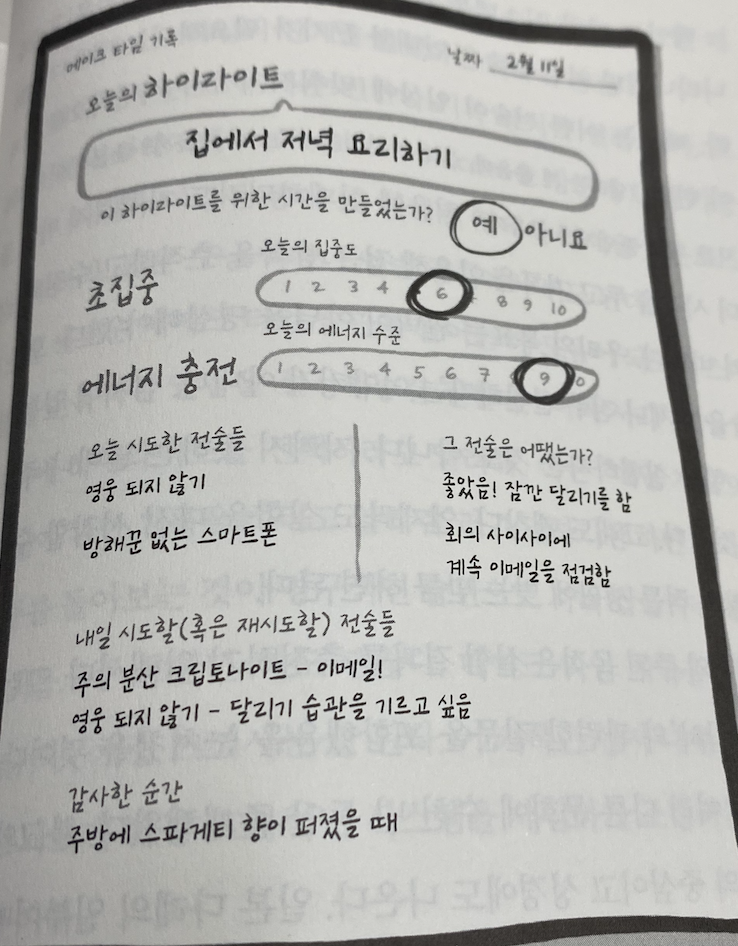 메이크 타임 기록
날짜 2월 11일
오늘의 하이라이트
집에서 저녁 요리하기
이 하이라이트를 위한 시간을 만들었는가? 예 아니요
오늘의 집중도
초집중 1 2 3 4 6 8 9 10
오늘의 에너지 수준
에너지 충전 1 2 3 4 5 6 7 9
오늘 시도한 전술들
영웅 되지 않기
방해꾼 없는 스마트폰
그 전술은 어땠는가?
좋았음! 잠깐 달리기를 함
회의 사이사이에
계속 이메일을 점검함
내일 시도할(혹은 재시도할) 전술들
주의 분산 크립토나이트 – 이메일!
영웅 되지 않기 – 달리기 습관을 기르고 싶음
감사한 순간
주방에 스파게티 향이 퍼졌을 때